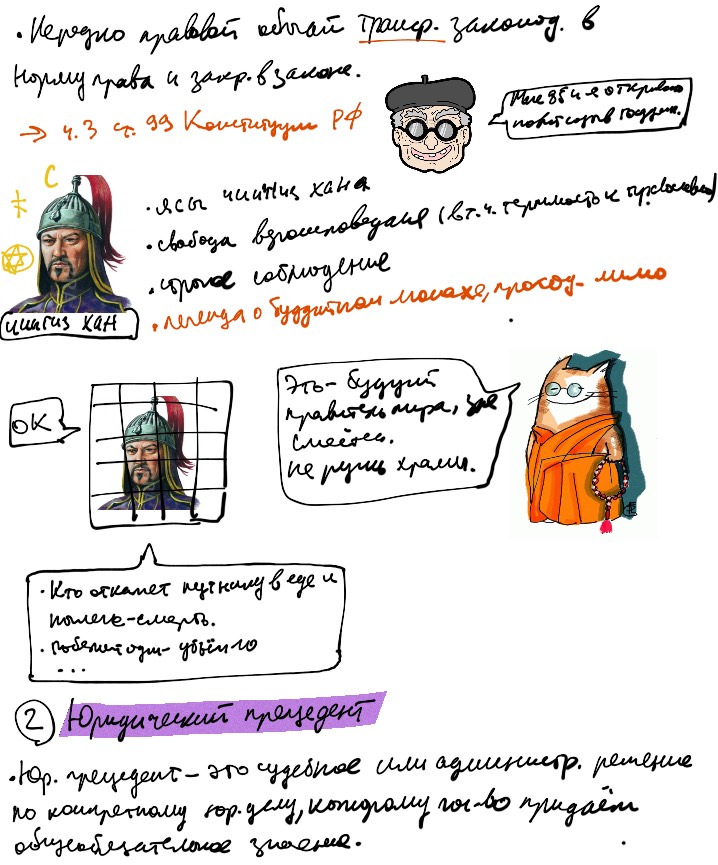 • Нередко правовой обычай трансф. законод. в
норму права и закр. в законе.
→ ч.3 ст. 99 Конституции РФ
Мне 85 и я открываю
С
• Ясы чингиз хана
• свобода вероисповедания (в т.ч. терпимость к православию)
• строгое соблюдение
• легенда о буддитском монахе, проход- мимо
чингиз хан
ок
Это- будущий
правитель мира, зря
смеётесь.
не рушь храмы.
• Кто откажет путнику в еде и
ночлеге-смерть.
• побежит один- убьём 10
...
2 Юридический прецедент
• Юр. прецедент – это судебное или администр. решение
по конкретному юр. делу, которому гос-во придаёт
общеобязательное значение.